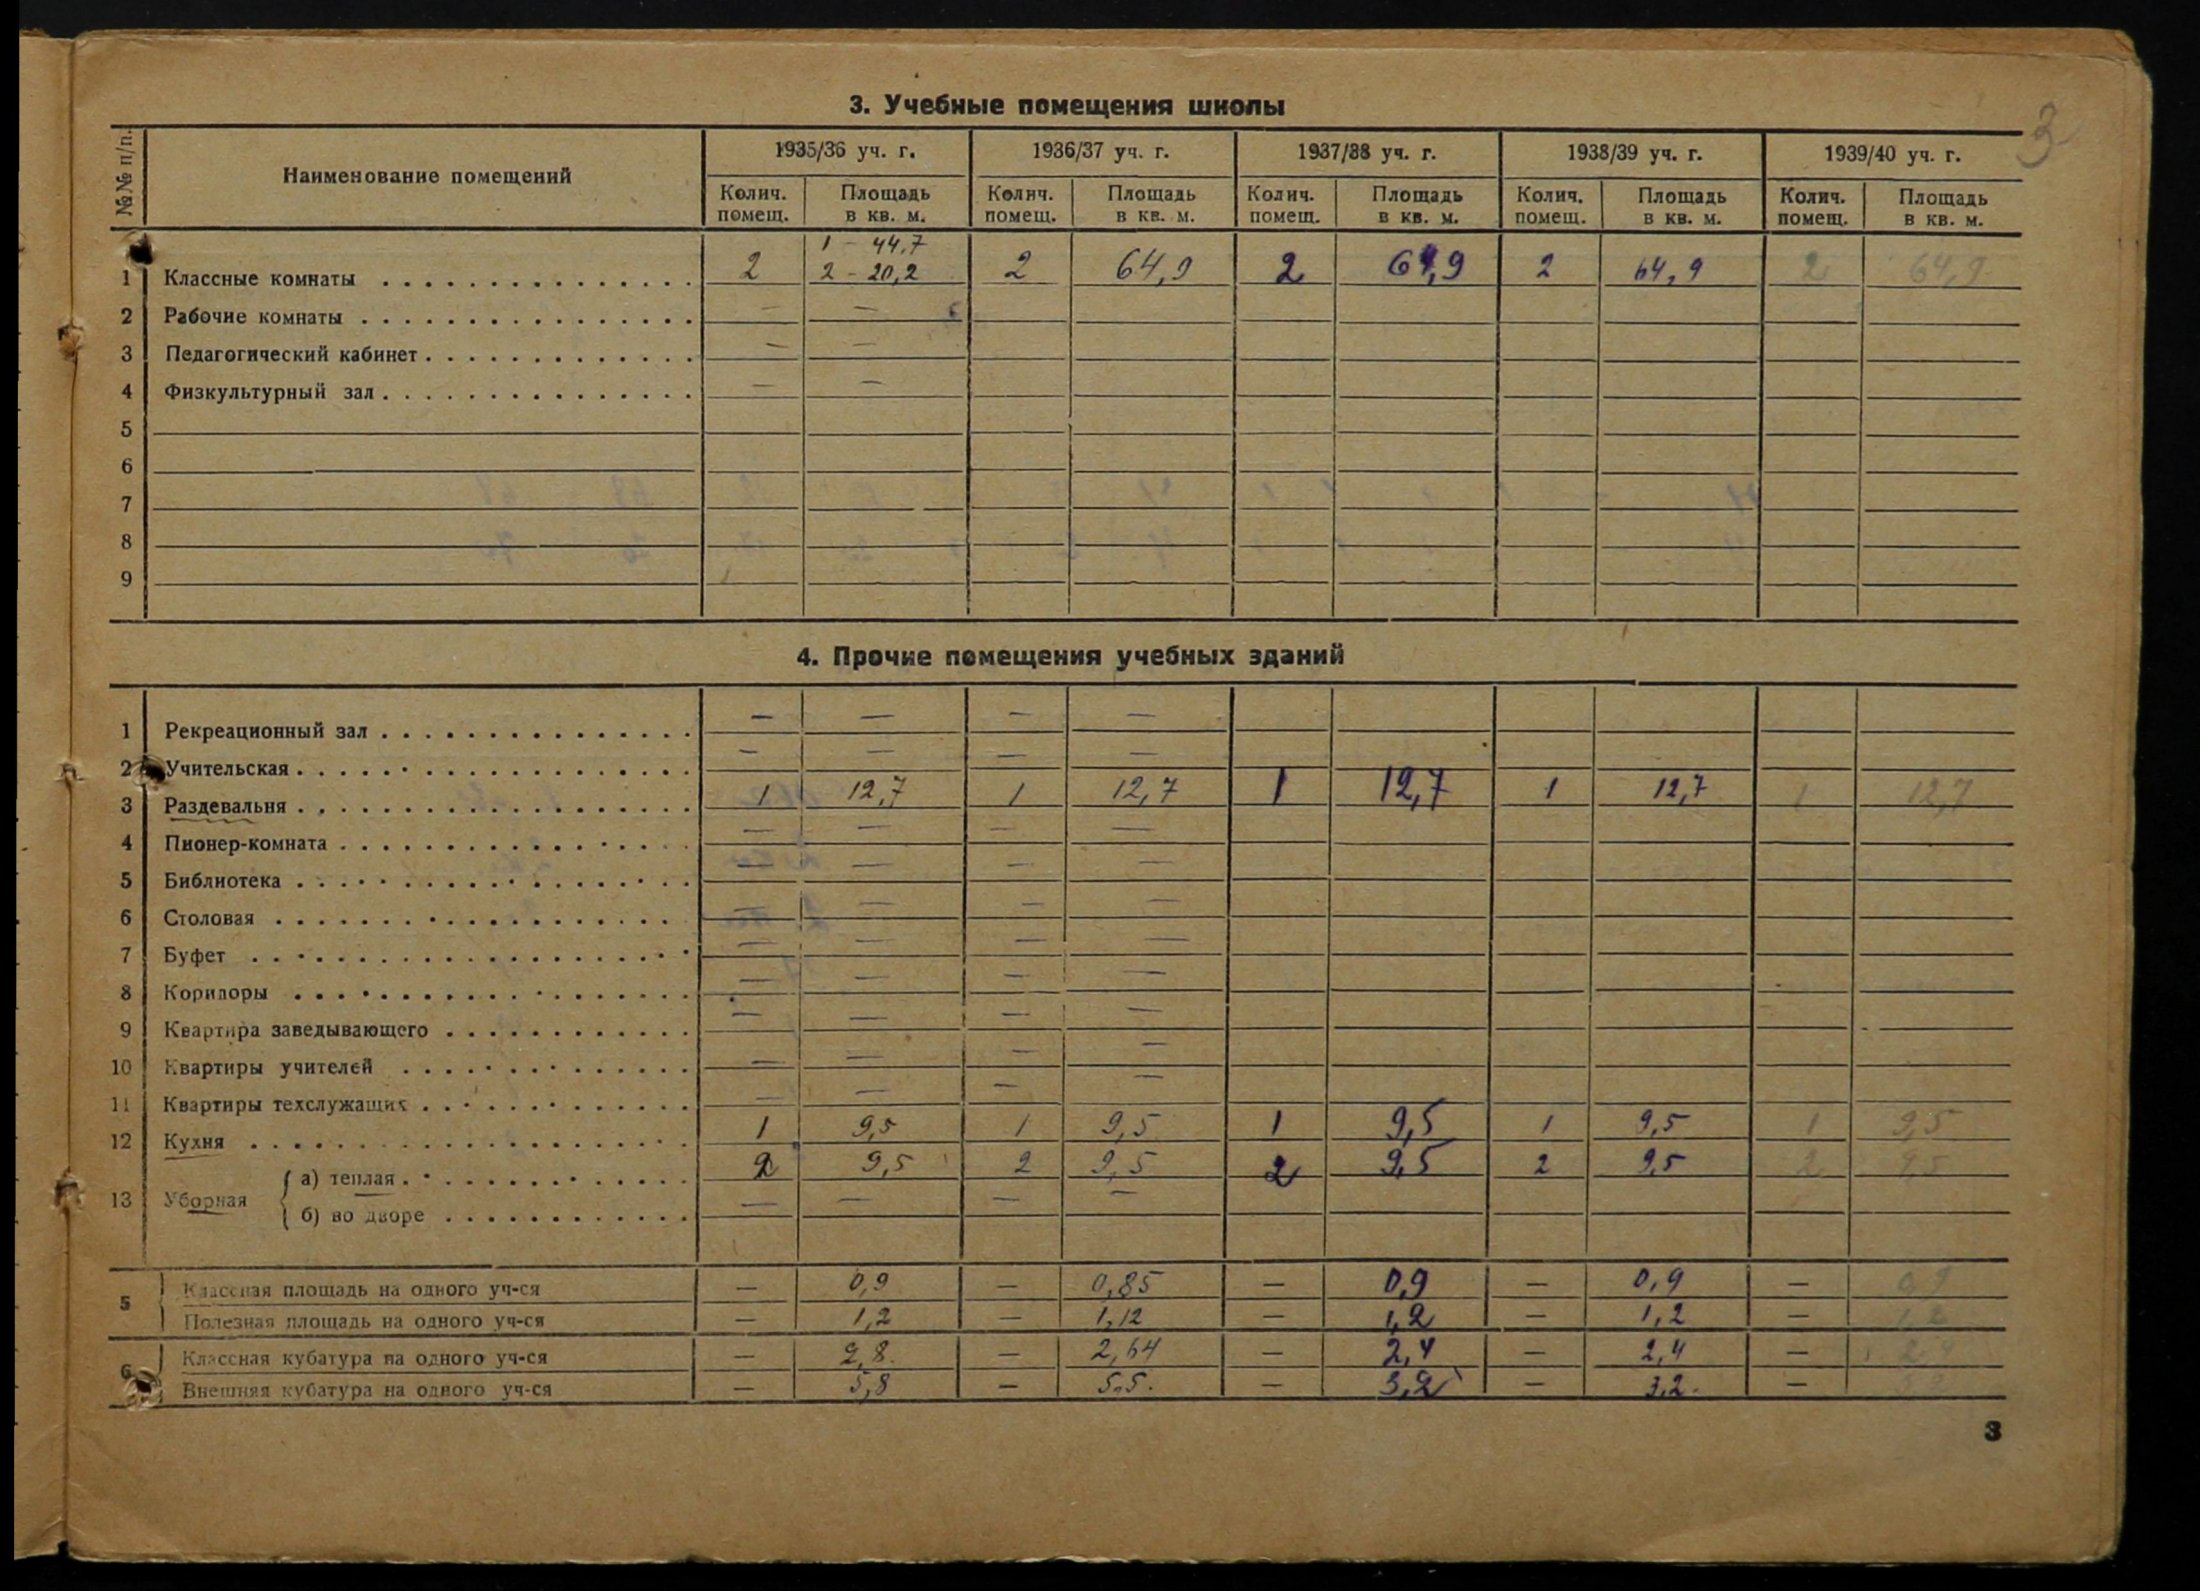 3
3. Учебные помещения школы
№№ п/п. Наименование помещений 1935/36 уч. г. 1936/37 уч. г. 1937/38 уч. г. 1938/39 уч. г. 1939/40 уч. г.
Колич. помещ. Площадь в кв. м. Колич. помещ. Площадь в кв. м. Колич. помещ. Площадь в кв. м. Колич. помещ. Площадь в кв. м. Колич. помещ. Площадь в кв. м.
1 – 44,7
1 Классные комнаты 2 2 – 20,2 2 64,9 2 64,9 2 64,9 2 64,9
2 Рабочие комнаты — —
3 Педагогический кабинет — —
4 Физкультурный зал — —
5
6
7
8
9
4. Прочие помещения учебных зданий
1 Рекреационный зал — — — —
2 Учительская — — — —
3 Раздевальня 1 12,7 1 12,7 1 12,7 1 12,7 1 12,7
4 Пионер-комната — — — —
5 Библиотека — — — —
6 Столовая — — — —
7 Буфет — — — —
8 Коридоры — — — —
9 Квартира заведывающего — — — —
10 Квартиры учителей — — — —
11 Квартиры техслужащих — — — —
12 Кухня 1 9,5 1 9,5 1 9,5 1 9,5 1 9,5
13 Уборная а) теплая 2 9,5 2 9,5 2 9,5 2 9,5 2 9,5
б) во дворе — — — —
5 Классная площадь на одного уч-ся — 0,9 — 0,85 — 0,9 — 0,9 — 0,9
Полезная площадь на одного уч-ся — 1,2 — 1,12 — 1,2 — 1,2 — 1,2
6 Классная кубатура на одного уч-ся — 2,8 — 2,64 — 2,4 — 2,4 — 2,4
Внешняя кубатура на одного уч-ся — 5,8 — 5,5. — 3,2 — 3,2. —
3